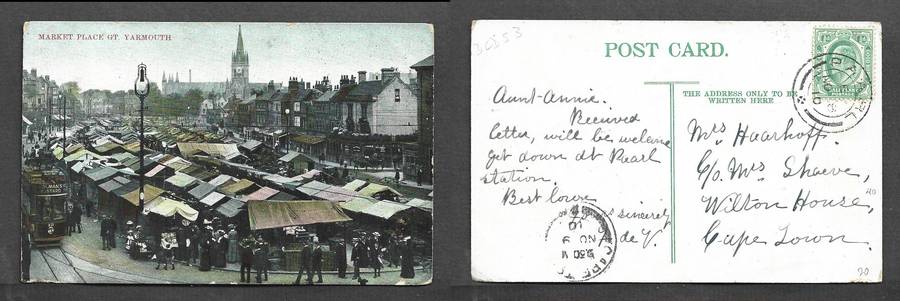 MARKET PLACE GT. YARMOUTH
30853
POST CARD.
THE ADDRESS ONLY TO BE
WRITTEN HERE
Aunt-Annie.
Received
letter, will be welcome
get down at Paarl
station.
Best love
sincerely
de V.
Mrs Haarhoff.
c/o. Mrs Shaeve,
Wilton House,
Cape Town.
20